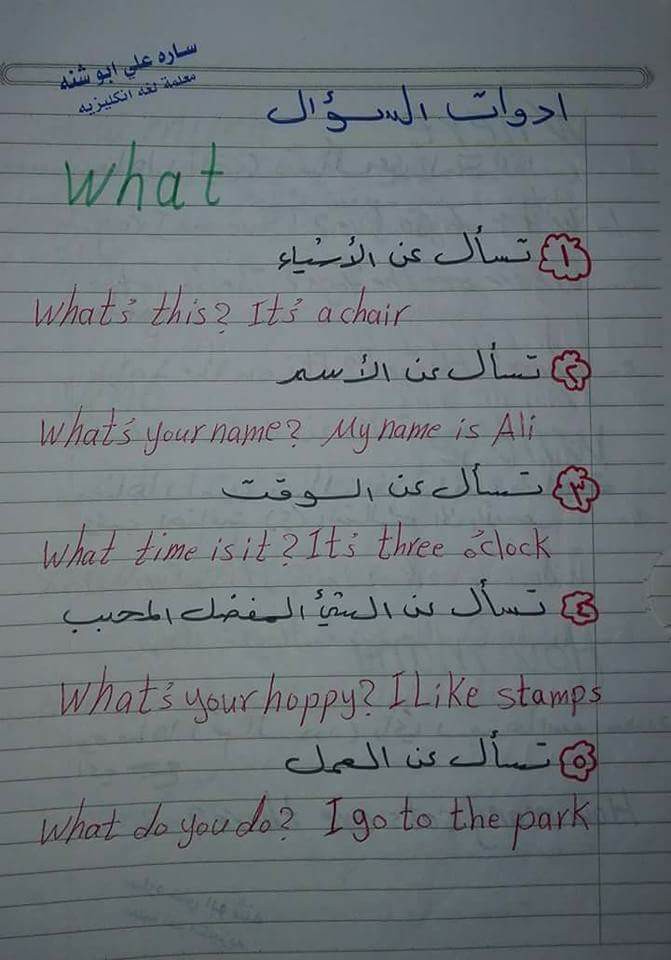 ساره علي ابو شنه
معلمة لغه انكليزيه
ادوات السؤال
What
١ تسأل عن الأشياء
What's this? It's a chair
٢ تسأل عن الأسم
What's your name? My name is Ali
٣ تسأل عن الوقت
What time is it? It's three o'clock
٤ تسأل عن الشيئ المفضل المحبب
What's your hoppy? I Like stamps
٥ تسأل عن العمل
What do you do? I go to the park